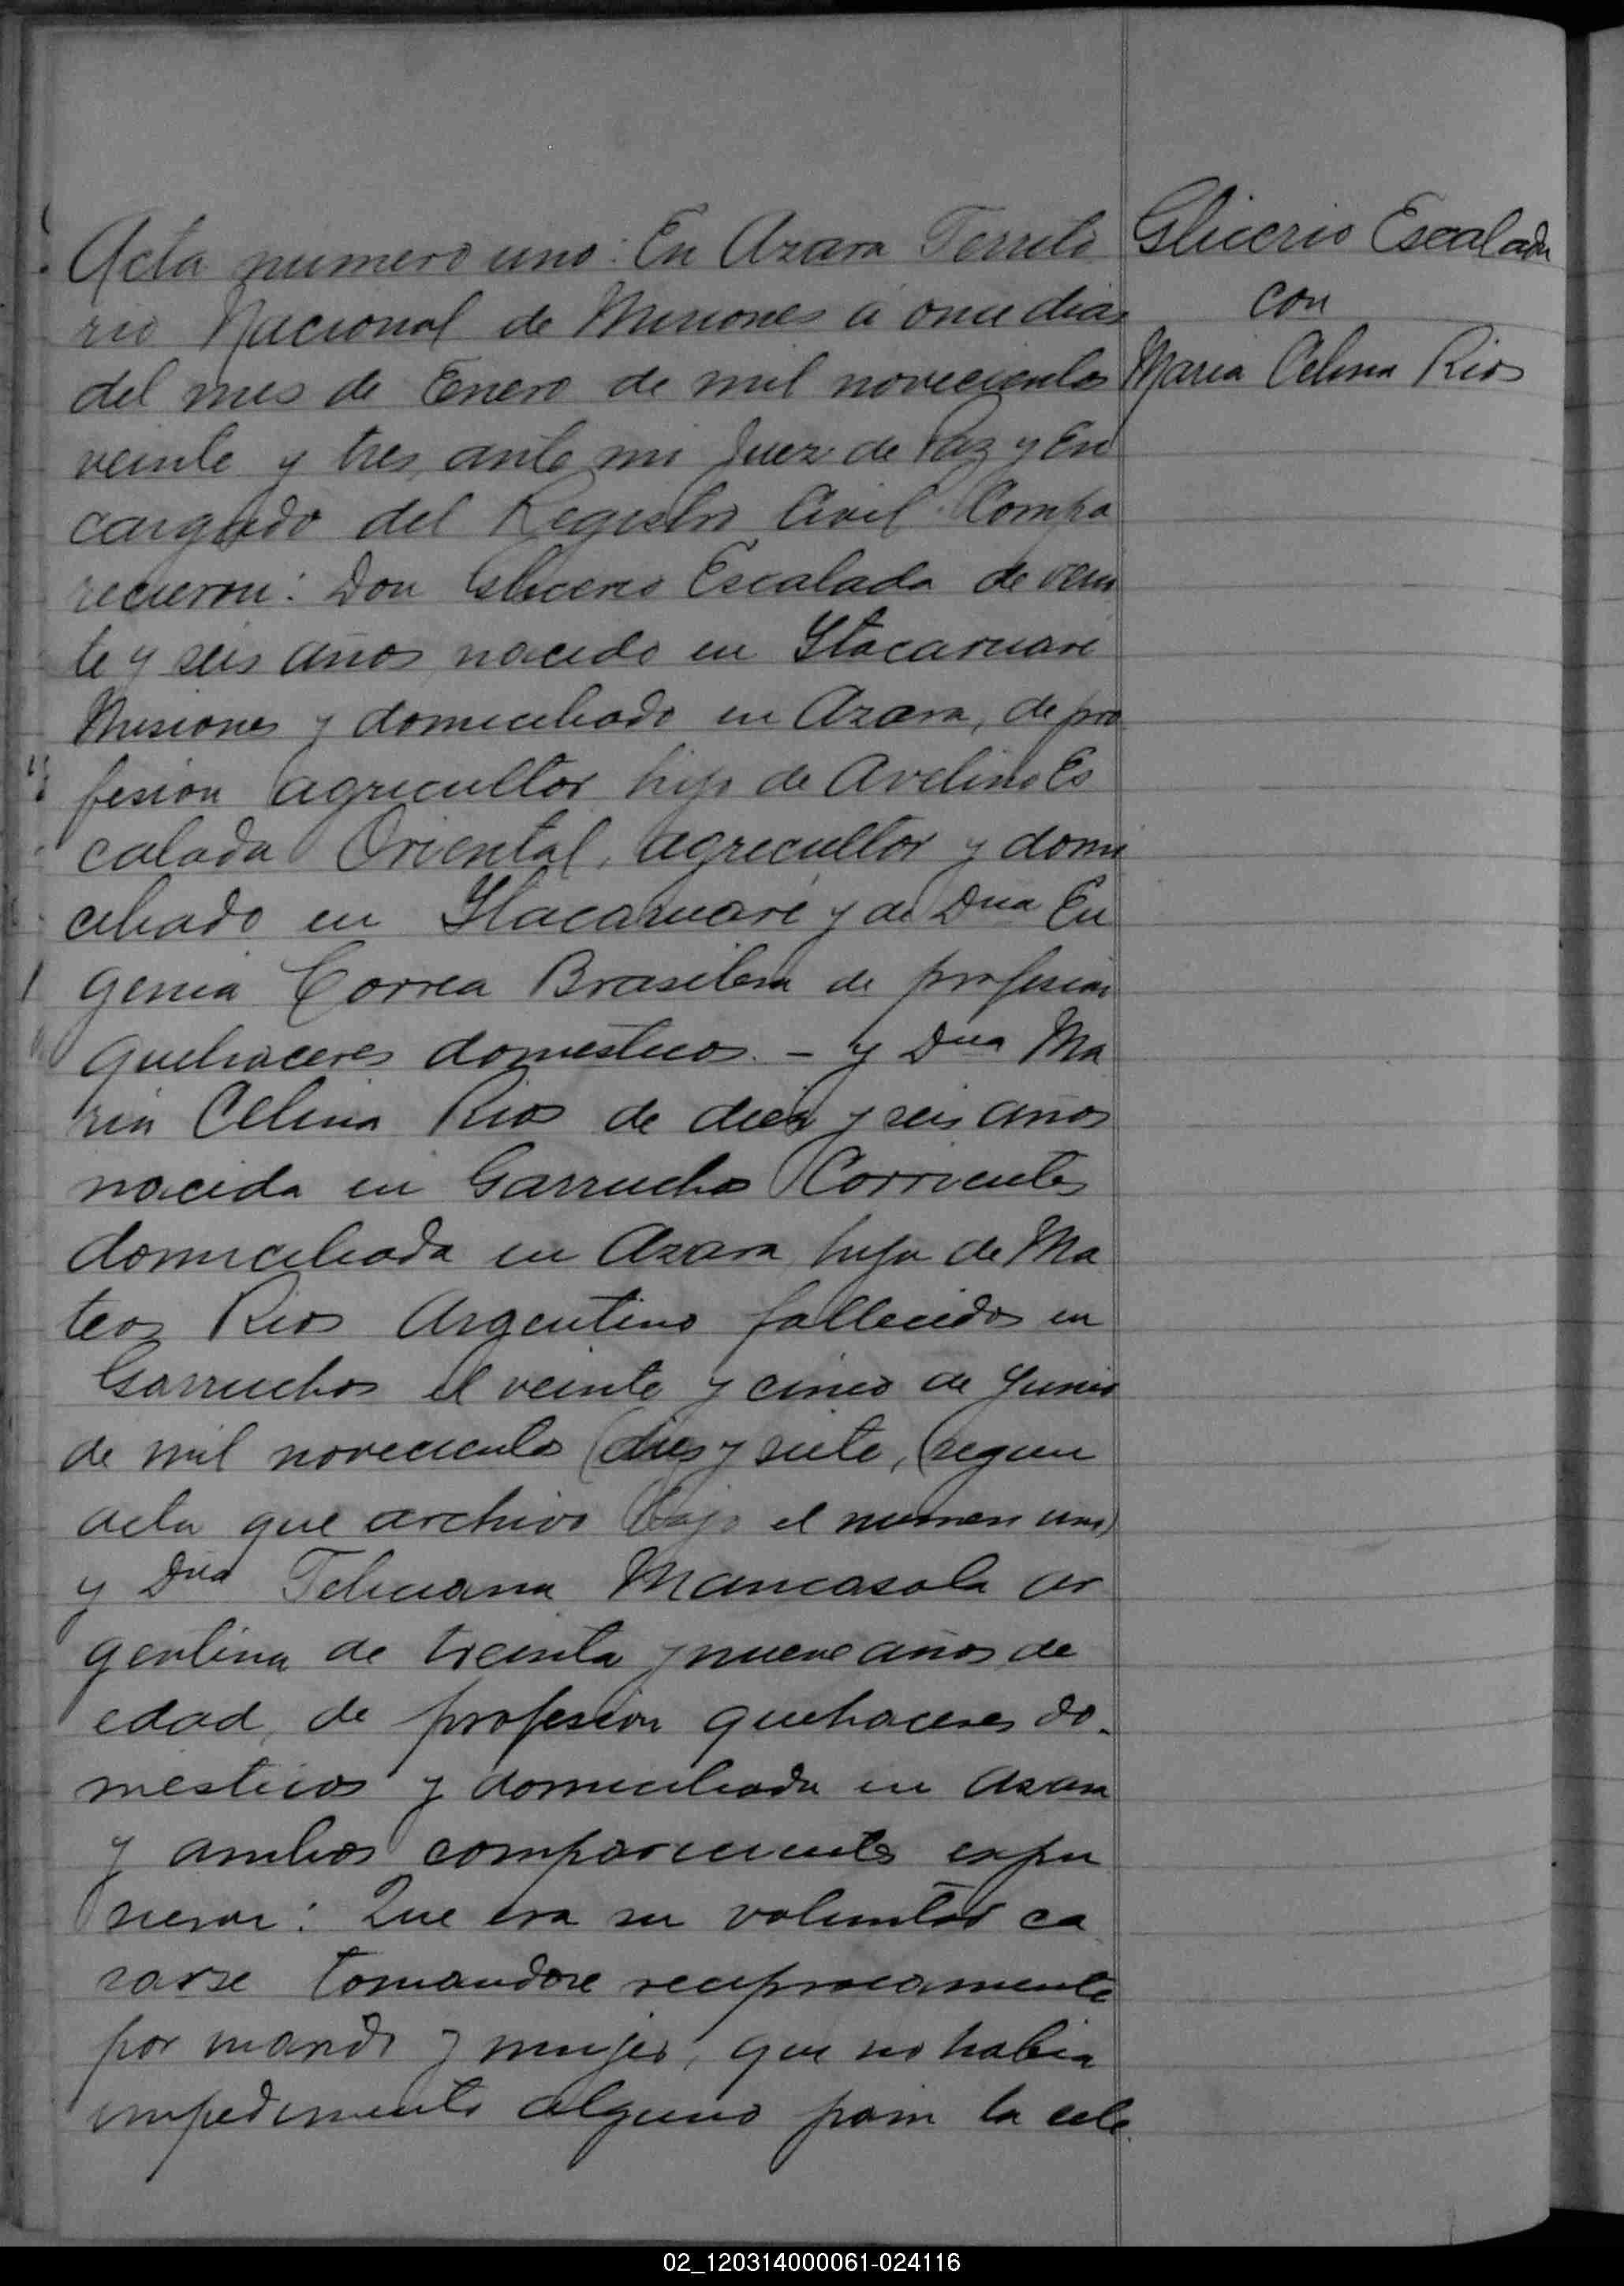 Acta numero uno: En Azara Territo
rio Nacional de Misiones a once dias
del mes de Enero de mil novecientos
veinte y tres, ante mi Juez de Paz y En
cargado del Registro Civil. Compa
recieron: Don Glicerio Escalada de vein
te y seis años, nacido en Itacaruaré
Misiones y domiciliado en Azara, de pro
fesion agricultor hijo de Avelino Es
calada Oriental, agricultor y domi
ciliado en Itacaruaré y de Dna Eu
genia Correa Brasilera de profesion
quehaceres domesticos. - y Dna Ma
ria Celina Rios de diez y seis años
nacida en Garruchos Corrientes
domiciliada en Azara, hija de Ma
teos Rios Argentino fallecidos en
Garruchos el veinte y cinco de Junio
de mil novecientos (dies y siete, (segun
acta que archivo bajo el numero uno)
y Dna Mancasola ar
gentina de treinta y nueve años de
edad, de profesion quehaceres do-
mesticos y domiciliada en Azara
y ambos comparecientes expu
sieron: Que era su voluntad ca
sarse tomandose reciprocamente
por marido y mujer, que no habia
impedimento alguno para la cele
Glicerio Escalada
con
Maria Celina Rios
02_120314000061-024116